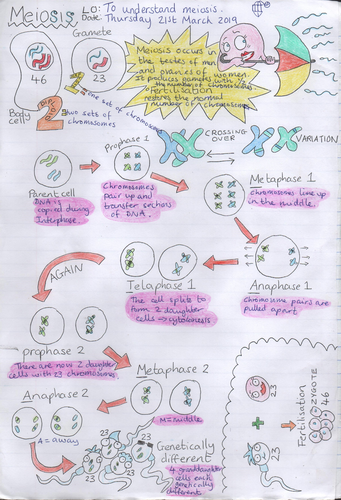 Meiosis
LO: To understand meiosis.
Date: Thursday 21st March 2019
Gamete
46
23
Body
Cell
2
Two sets of
chromosomes
1
One set of chromosomes
Meiosis occurs in
the testes of men
and ovaries of women.
It produces gametes with ½
the number of chromosomes.
Fertilisation
restores the normal
number of chromosomes.
CROSSING
OVER
VARIATION
Parent cell
DNA is
copied during
Interphase.
Prophase 1
Chromosomes
pair up and
transfer sections
of DNA.
Metaphase 1
Chromosomes line up
in the middle.
Anaphase 1
Chromosome pairs are
pulled apart.
Telaphase 1
The cell splits to
form 2 daughter
cells → cytokinesis
AGAIN
prophase 2
There are now 2 daughter
cells with 23 chromosomes.
Metaphase 2
M=middle
Anaphase 2
A = away
23
23
23
23
Genetically
different
4 granddaughter
cells each
genetically
different
23
+
23
Fertilisation
ZYGOTE
46